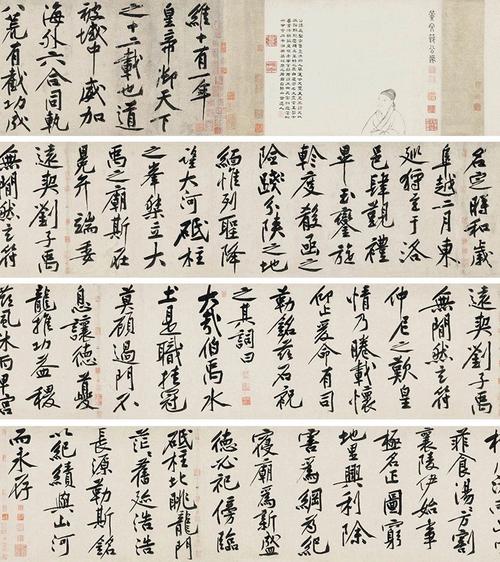 黃文節公像
維十有一年
皇帝御天下
之十二載也道
被域中威加
海外六合同軌
八荒有截功成
名定時和歲
阜越二月東
巡狩至于洛
邑肆覲禮
畢玉鑾旋
軫度殽函之
險踐分陝之地
緬惟列聖降
望大河砥柱
之峯桀立大
禹之廟斯在
冕弁端委
遠契劉子禹
無間然玄符
遠契劉子禹
無間然玄符
仲尼之歎皇
情乃睠載懷
仰止爰命有司
勒銘茲石祝
之其詞曰
大哉伯禹水
土是職挂冠
莫顧過門不
息讓德夔
龍推功益稷
風沐雨卑宮
菲食湯湯方割
襄陵伊始事
極名正圖窮
地里興利除
害為綱為紀
寢廟為新盛
德必祀傍臨
砥柱北眺龍門
茫茫舊跡浩浩
長源勒斯銘
以紀績與山河
而永存